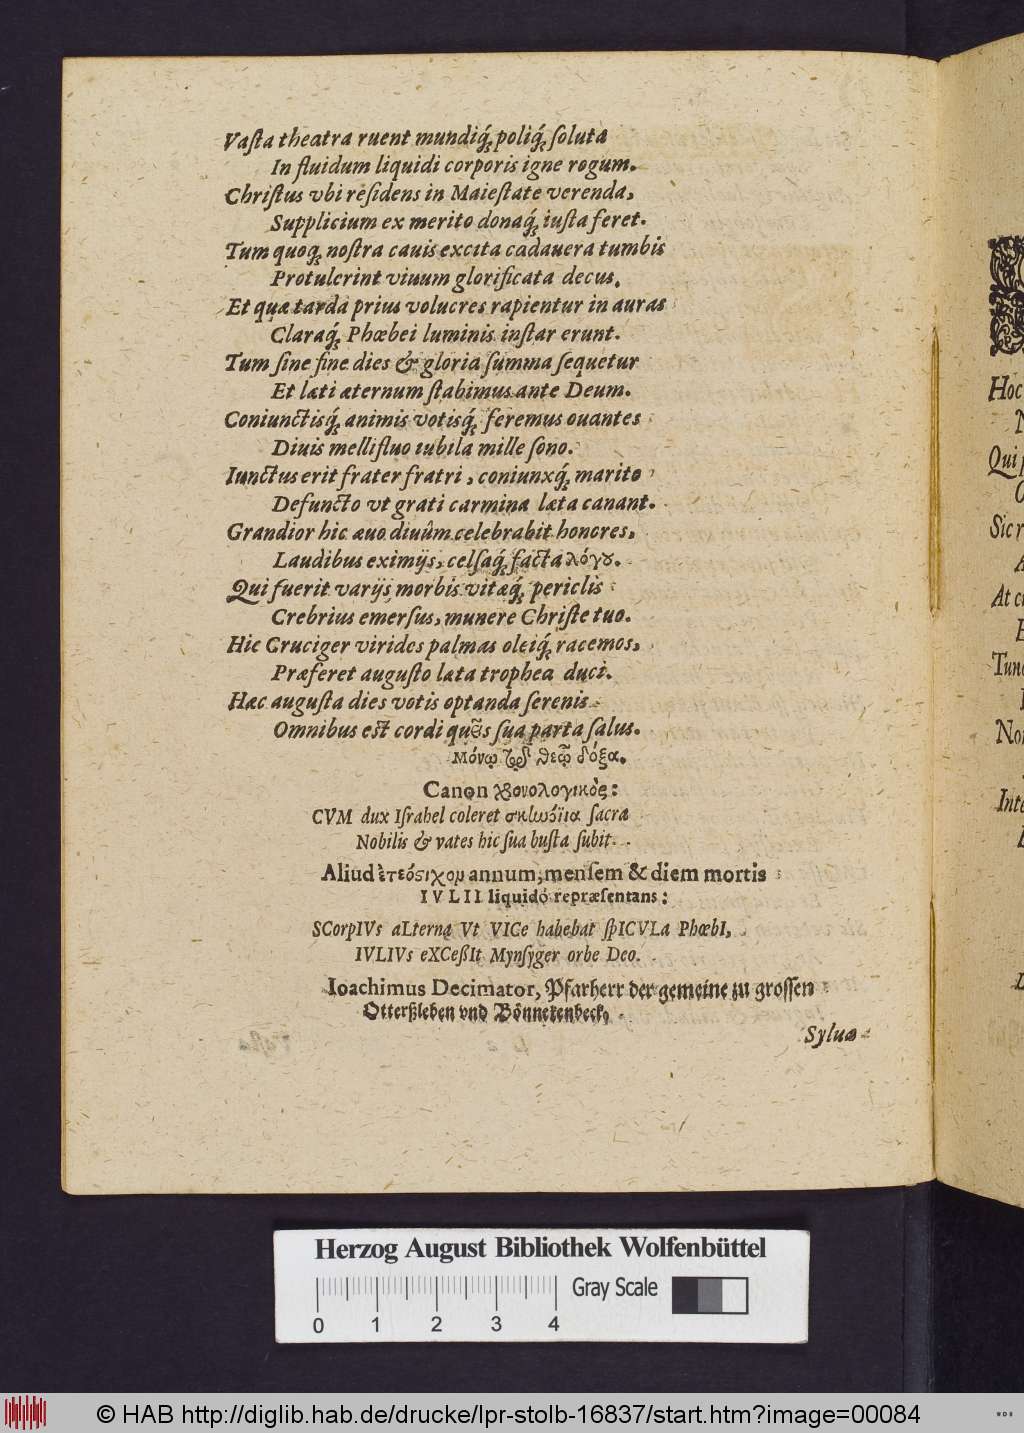 Vaſta theatra ruent mundiq́; poliq́; ſoluta
In fluidum liquidi corporis igne rogum.
Chriſtus vbi reſidens in Maieſtate verenda,
Supplicium ex merito donaq́; iuſta feret.
Tum quoq; noſtra cauis excita cadauera tumbis
Protulerint viuum glorificata decus.
Et quæ tarda prius volucres rapientur in auras
Claraq́; Phœbei luminis inſtar erunt.
Tum ſine fine dies & gloria ſumma ſequetur
Et læti æternum ſtabimus ante Deum.
Coniunctisq́; animis votisq́; feremus ouantes
Diuis mellifluo iubila mille ſono.
Iunctus erit frater fratri, coniunxq́; marito
Defuncto vt grati carmina læta canant.
Grandior hic æuo diuûm celebrabit honores,
Laudibus eximijs, celſaq́; facta λόγȣ.
Qui fuerit varijs morbis vitæq́; periclis
Crebrius emerſus, munere Chriſte tuo.
Hic Cruciger virides palmas oleiq́; racemos,
Præferet auguſto læta trophea duci.
Hæc auguſta dies votis optanda ſerenis
Omnibus eſt cordi quêis ſua parta ſalus.
Μόνῳ τῷ θεῷ δόξα.
Canon χρονολογικὸς:
CVM dux Iſrahel coleret σκηνώϊα ſacra
Nobilis & vates hic ſua buſta ſubit.
Aliud ἐτεόσιχον annum, menſem & diem mortis
IVLII liquidò repræſentans:
SCorpIVs aLterna Vt VICe habebat ſpICVLa PhœbI,
IVLIVs eXCeßIt Mynſyger orbe Deo.
Ioachimus Decimator, Pfarherr der gemeine zu groſſen
Otterßleben vnd Bönnekenbeck,
Syluæ
Hoc
Qui
Sic
At
Herzog August Bibliothek Wolfenbüttel
Gray Scale
0 1 2 3 4
© HAB http://diglib.hab.de/drucke/lpr-stolb-16837/start.htm?image=00084